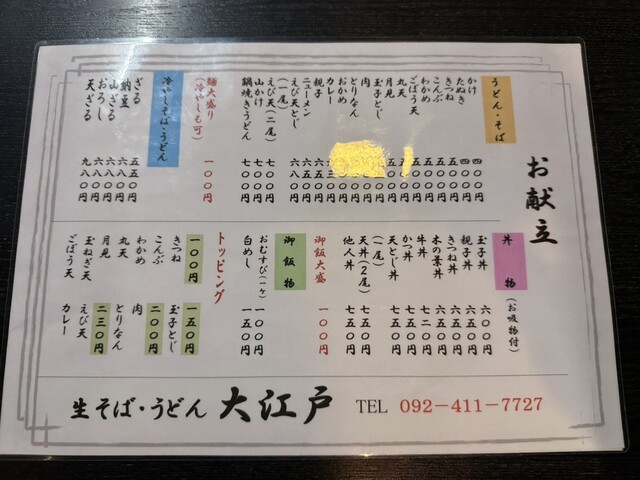 お献立
うどん・そば
かけ 四〇〇円
たぬき 四〇〇円
きつね 五〇〇円
こんぶ 五〇〇円
わかめ 五〇〇円
ごぼう天
丸天
月見
玉子とじ
肉
とりなん
おかめ
カレー
親子
ニューメン
えび天とじ
(一尾) 六八〇円
えび天(二尾) 七〇〇円
山かけ 七〇〇円
鍋焼きうどん 七〇〇円
麺大盛り 一〇〇円
(冷やしも可)
冷やしそば・うどん
ざる 五五〇円
納豆 六八〇円
山ざる 六八〇円
おろし 六八〇円
天ざる 九八〇円
丼物 (お吸物付)
玉子丼 六〇〇円
親子丼 六五〇円
きつね丼 六五〇円
木の葉丼 六五〇円
牛丼 七二〇円
かつ丼 七五〇円
天とじ丼 六五〇円
(一尾)
天丼(2尾) 七五〇円
他人丼 七五〇円
御飯大盛 一〇〇円
御飯物
おむすび(一ヶ) 一〇〇円
白めし 一五〇円
トッピング
一〇〇円
きつね
こんぶ
わかめ
丸天
月見
玉ねぎ天
ごぼう天
一五〇円
玉子とじ
二〇〇円
肉
とりなん
二三〇円
えび天
カレー
生そば・うどん 大江戸 TEL 092-411-7727